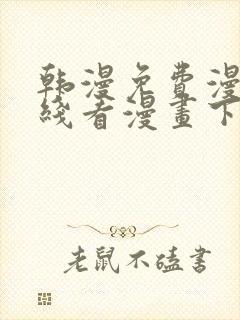 韩漫免费漫
线看漫画下
老鼠不嗑书